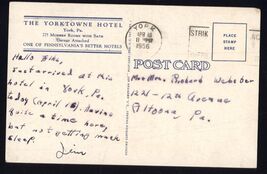 THE YORKTOWNE HOTEL
York, Pa.
275 MODERN ROOMS WITH BATH
Garage Attached
ONE OF PENNSYLVANIA'S BETTER HOTELS
Hello Bike,
Just arrived at this
hotel in York, Pa.
today (April 18). Having
quite a time honey,
but not getting much
sleep.
Jim
YORK
APR 18
1956
STRIK
POST CARD
Mr. Mrs. Richard Webster
221-12th Avenue
Altoona Pa.